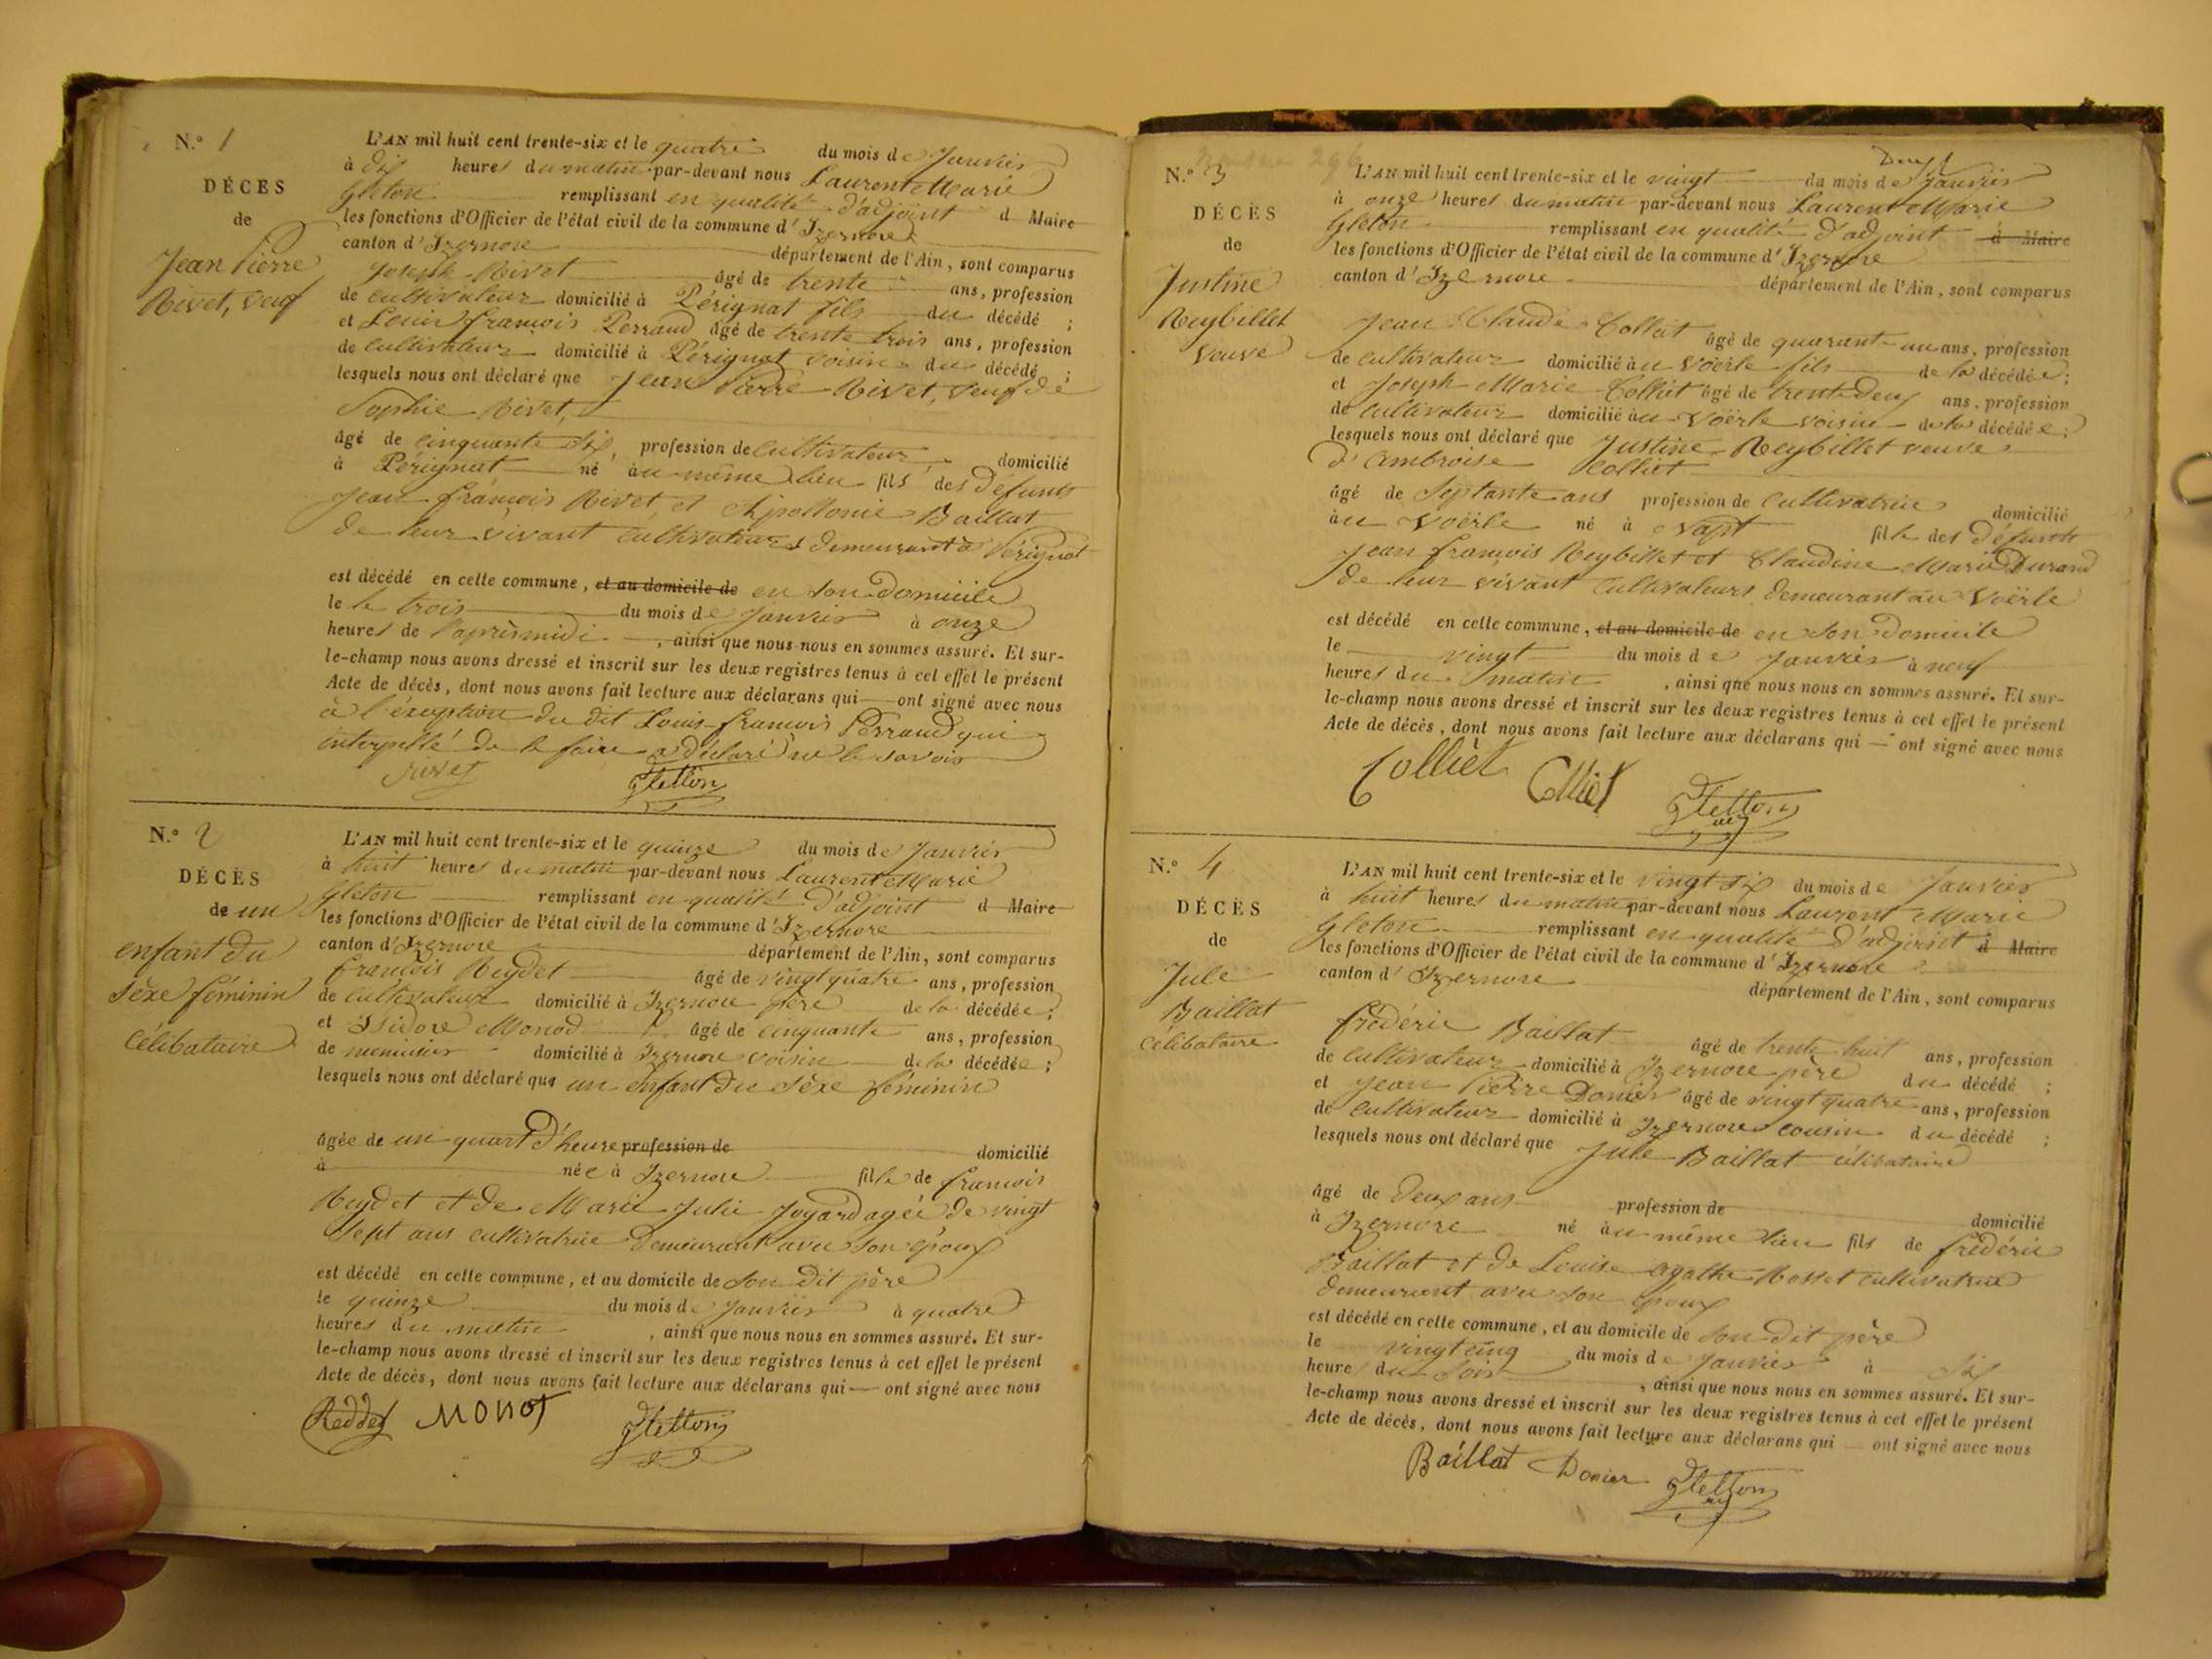 N.º 1
DÉCES
de
Jean Pierre
Rivet, veuf
L'AN mil huit cent trente-six et le quatre du mois de Janvier
à dix heures du matin par-devant nous Laurent Marie
Gleton remplissant en qualité d'adjoint d Maire
les fonctions d'Officier de l'état civil de la commune d'Izernore
canton d'Izernore département de l'Ain, sont comparus
Joseph Rivet âgé de trente ans, profession
de cultivateur domicilié à Pérignat fils du décédé ;
et Louis françois Perraud âgé de trente trois ans, profession
de cultivateur domicilié à Pérignat voisin du décédé ;
lesquels nous ont déclaré que Jean Pierre Rivet, veuf de
Sophie Rivet,
âgé de cinquante six, profession de cultivateur, domicilié
à Pérignat né au même lieu fils des défunts
Jean françois Rivet et Apollonie Baillat
de leur vivant cultivateurs demeurant à Pérignat
est décédé en cette commune, et au domicile de en son domicile
le le trois du mois de Janvier à onze
heures de l'aprèsmidi, ainsi que nous nous en sommes assuré. Et sur-
le-champ nous avons dressé et inscrit sur les deux registres tenus à cet effet le présent
Acte de décès, dont nous avons fait lecture aux déclarans qui ont signé avec nous
à l'exception du dit Louis françois Perraud qui
interpellé de le faire a déclaré ne le savoir
rivet Gletton
N.º 2
DÉCÈS
de un
enfant du
séxe féminin
célibataire
L'AN mil huit cent trente-six et le quinze du mois de Janvier
à huit heures du matin par-devant nous Laurent Marie
Gleton remplissant en qualité d'adjoint d Maire
les fonctions d'Officier de l'état civil de la commune d'Izernore
canton d'Izernore département de l'Ain, sont comparus
françois Reydet âgé de vingt quatre ans, profession
de cultivateur domicilié à Izernore père de la décédée ;
et Isidore Monod âgé de cinquante ans, profession
de menuisier domicilié à Izernore voisin de la décédée ;
lesquels nous ont déclaré que un enfant du séxe féminin
âgée de un quart d'heure profession de domicilié
à née à Izernore fille de francois
Reydet et de Marie Julie Joyard agée de vingt
sept ans cultivatrice demeurant avec son époux
est décédé en cette commune, et au domicile de son dit père
le quinze du mois de Janvier à quatre
heures du matin, ainsi que nous nous en sommes assuré. Et sur-
le-champ nous avons dressé et inscrit sur les deux registres tenus à cet effet le présent
Acte de décès, dont nous avons fait lecture aux déclarans qui ont signé avec nous
Reddet MONOT Gletton
N.º 3
DÉCÈS
de
Justine
Reybillet
veuve
L'AN mil huit cent trente-six et le vingt du mois de Janvier
à onze heures du matin par-devant nous Laurent Marie
Gleton remplissant en qualité d'adjoint d Maire
les fonctions d'Officier de l'état civil de la commune d'Izernore
canton d'Izernore département de l'Ain, sont comparus
Jean Claude Colliat âgé de quarante un ans, profession
de cultivateur domicilié au Voërle fils de la décédée ;
et Joseph Marie Colliat âgé de trente deux ans, profession
de cultivateur domicilié au Voërle voisin de la décédée ;
lesquels nous ont déclaré que Justine Reybillet veuve
d'ambroise Colliet
âgé de septante ans profession de cultivatrice domicilié
au Voërle né à fille des défunts
Jean françois Reybillet et Claudine Marie Durand
de leur vivant cultivateurs demeurant au Voërle
est décédé en cette commune, et au domicile de en son domicile
le vingt du mois de Janvier à neuf
heures du matin, ainsi que nous nous en sommes assuré. Et sur-
le-champ nous avons dressé et inscrit sur les deux registres tenus à cet effet le présent
Acte de décès, dont nous avons fait lecture aux déclarans qui ont signé avec nous
Colliet Colliet Gletton
N.º 4
DÉCÈS
de
Jule
Baillat
célibataire
L'AN mil huit cent trente-six et le vingt six du mois de Janvier
à huit heures du matin par-devant nous Laurent Marie
Gleton remplissant en qualité d'adjoint d Maire
les fonctions d'Officier de l'état civil de la commune d'Izernore
canton d'Izernore département de l'Ain, sont comparus
frédéric Baillat âgé de trente huit ans, profession
de cultivateur domicilié à Izernore père du décédé ;
et Jean Pierre Donier âgé de vingt quatre ans, profession
de cultivateur domicilié à Izernore cousin du décédé ;
lesquels nous ont déclaré que Jule Baillat célibataire
âgé de deux ans profession de domicilié
à Izernore né au même lieu fils de frédéric
Baillat et de Louise agathe Mosset cultivatrice
demeurant avec son époux
est décédé en cette commune, et au domicile de son dit père
le vingt cinq du mois de Janvier à six
heure du soir, ainsi que nous nous en sommes assuré. Et sur-
le-champ nous avons dressé et inscrit sur les deux registres tenus à cet effet le présent
Acte de décès, dont nous avons fait lecture aux déclarans qui ont signé avec nous
Baillat Donier Gletton